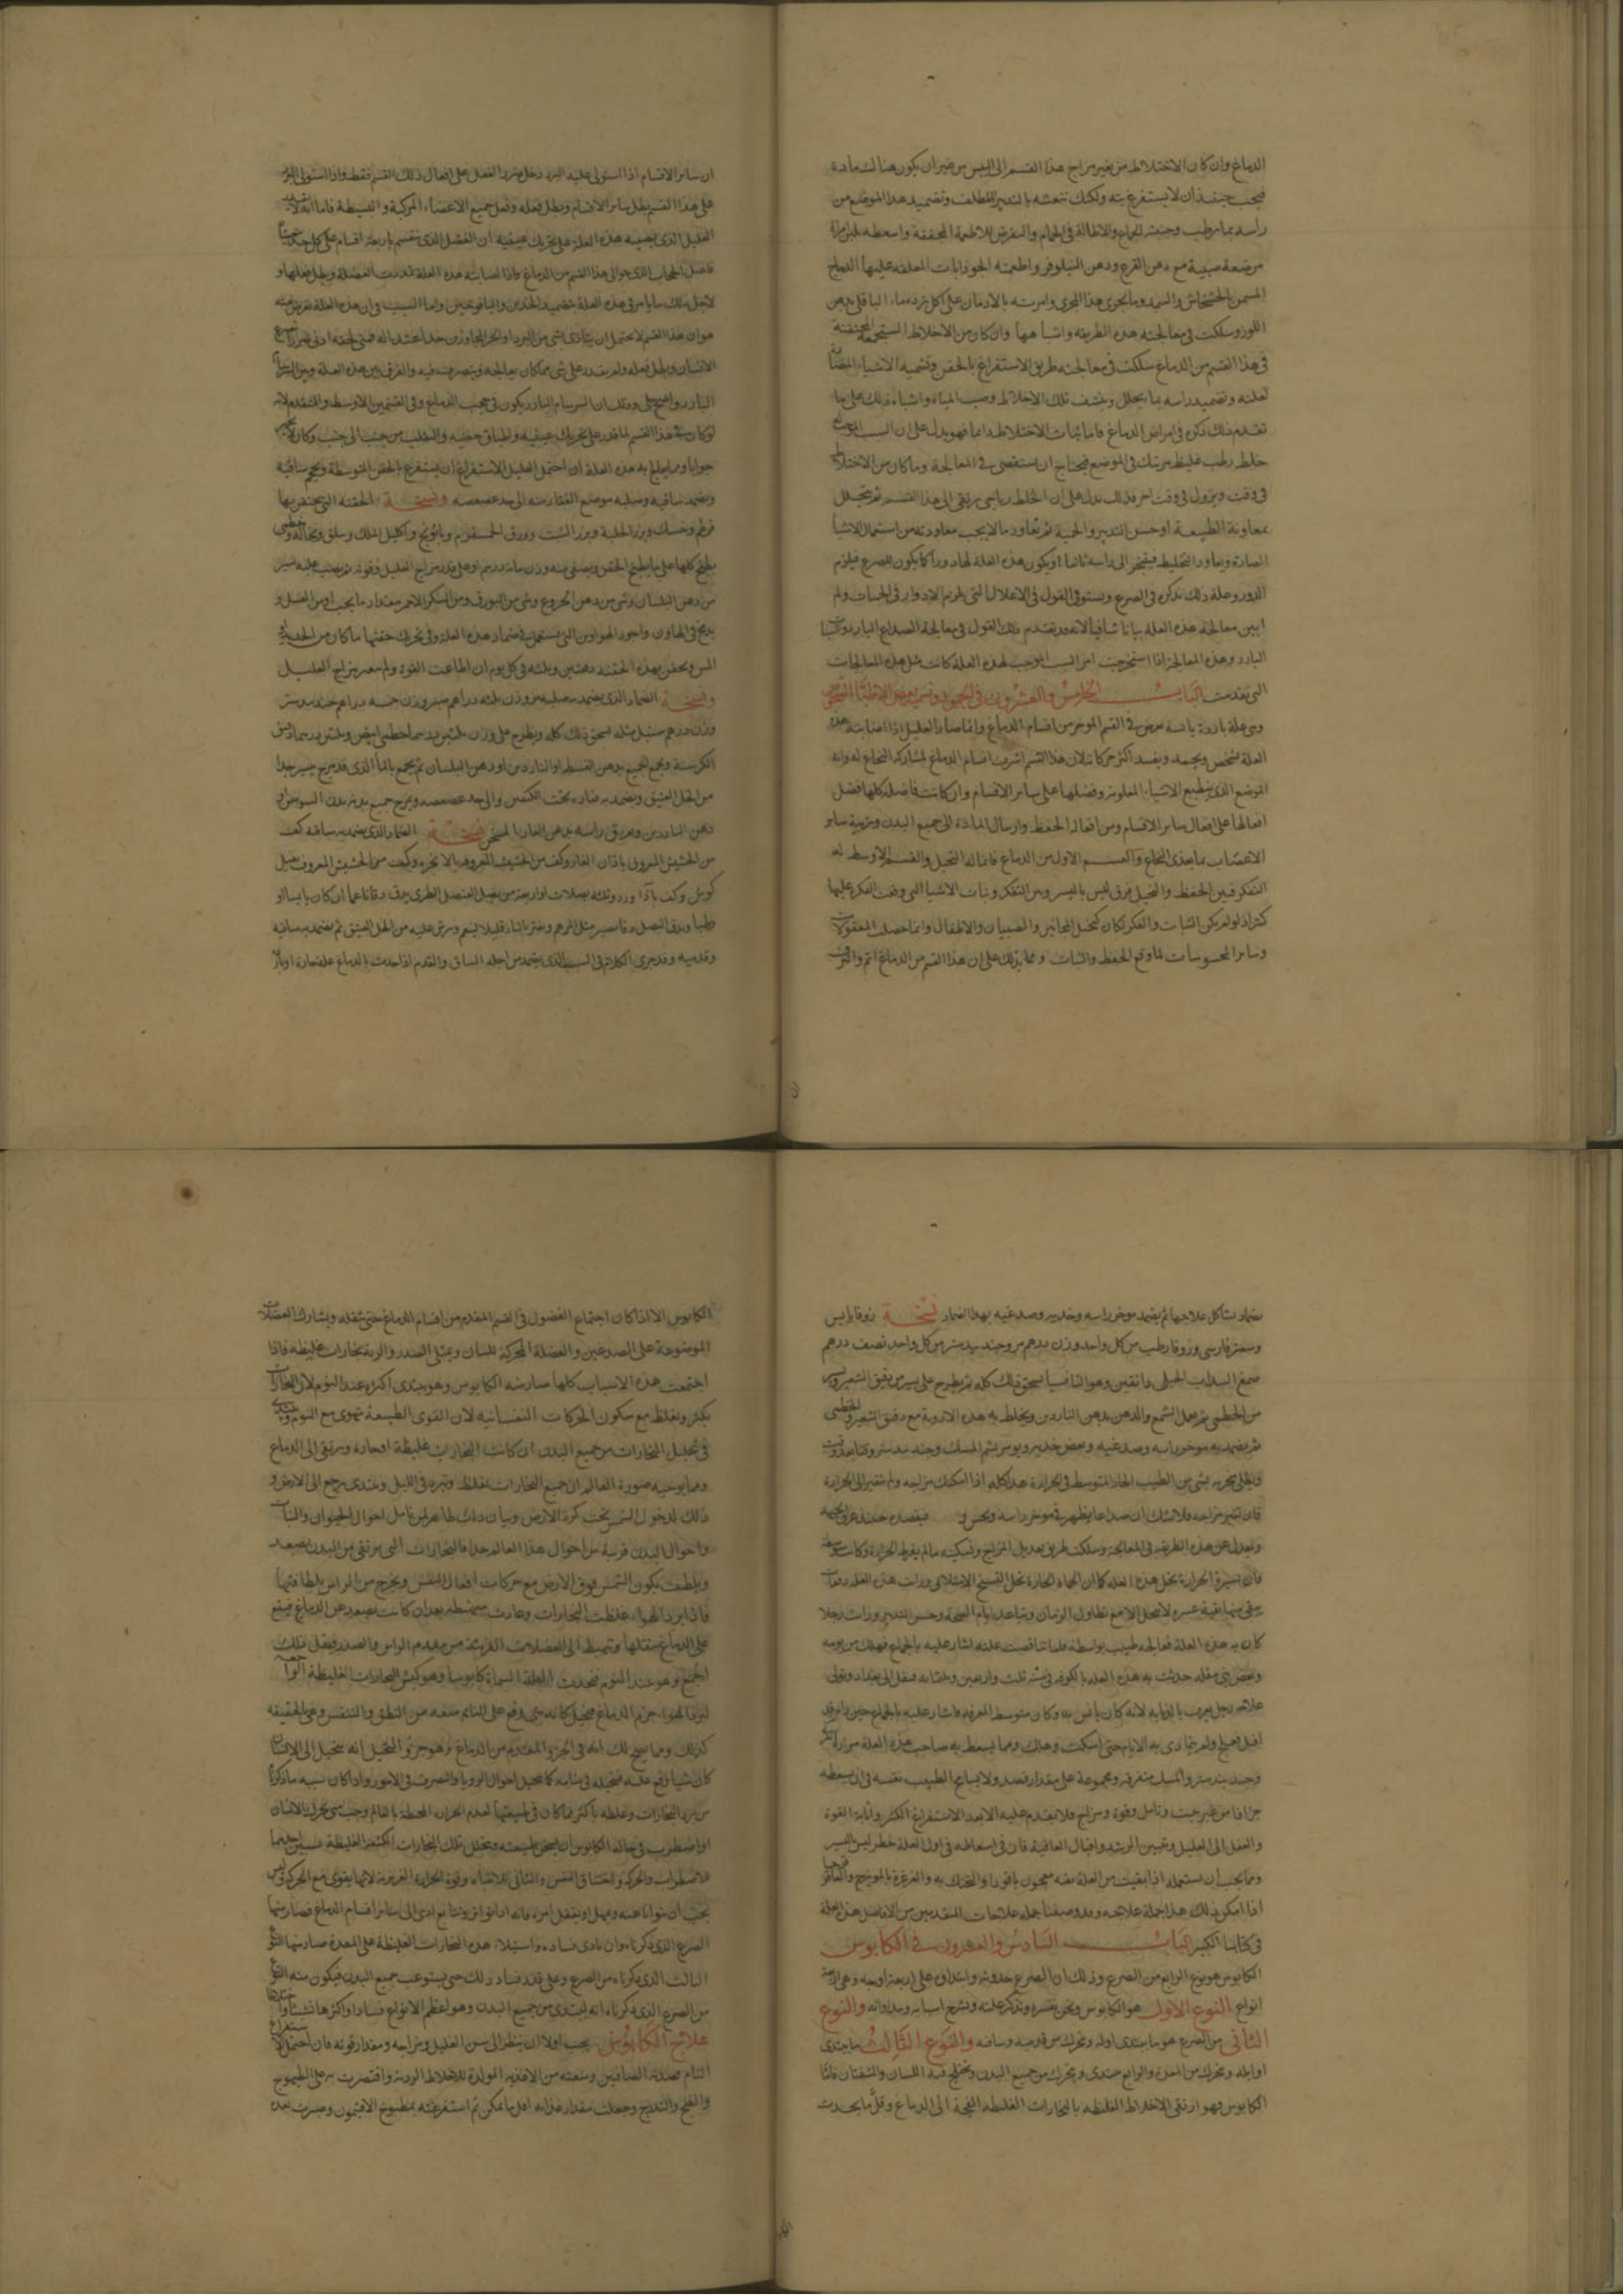 الدماغ وان كان الاختلاط من تغير مزاج هذا القسم الى اليبس من غير ان يكون هناك مادة
فيجب حينئذ ان لا يستفرغ بته ولكنك تنعشه بالتدبير المطلف وتضميد هذا الموضع من
راسه بما يرطب وجنبته الجماع والاطالة فى الحمام والتعرض للاطعمة المجففة واسعطه بلبن امراة
مرضعة صبية مع دهن القرع ودهن النيلوفر واطعمته الجوذابات المعلقه عليها الدجاج
المسمن بالخشخاش والسميد وما يجرى هذا المجرى وامرته بالادمان على اكل ماء الباقلى بدهن
اللوز وسلكت فى معالجته هذه الطريقه واشباهها وان كان من الاخلاط المحتقنة
فى هذا القسم من الدماغ سلكت فى معالجته طريق الاستفراغ بالحقن وتشميه الاشياء المضادة
لعلته وتضميد راسه بما يحلل وينشف تلك الاخلاط وصب المياه واشباه ذلك على ما
تقدم ذلك ذكره فى امراض الدماغ فاما ثبات الاختلاط دايما فهو يدل على ان السبب
خلط رطب غليظ مرتبك فى الموضع فيحتاج ان يستقصى فى المعالجة وما كان من الاختلاط
فى وقت ويزول فى وقت اخر فذلك يدل على ان الخلط رياحى يرتقى الى هذا القسم ثم يتحلل
بمعاونة الطبيعة او حسن التدبير والحمية ثم يعاود ما لا يجب معاودته من استعمال الاشيا
الضارة ويعاود التخليط فيتبخر الى راسه ثانيا او يكون هذه العلة لها دور كما يكون للصرع فيلزم
الدور وعلة ذلك نذكره فى الصرع ونستوفى القول فى الاعلال التى يلزم الادوار فى الحميات ولم
ابين معالجة هذه العلة بيانا شافيا لانه قد تقدم ذلك القول فى معالجة الصداع البارد
البارد وهذه المعالجة اذا استخرجت امر السبب الموجب لهذه العلة كانت مثل هذه المعالجات
التى تقدمت الباب الخامس والعشرون فى الجمود وتسميه بعض الاطبا الشخوص
وهى علة باردة يابسة تعرض فى القسم الموخر من اقسام الدماغ وانما صار العليل اذا اصابته هذه
العلة شخص ويجمد ويفسد اكثر حركاته لان هذا القسم اشرف اقسام الدماغ لمشاركه النخاع له وانه
الموضع الذى ينطبع الاشياء المعلومة وفضلها على ساير الاقسام وان كانت فاضله كلها فضل
افعالها على افعال ساير الاقسام ومن افعاله الحفظ وارسال المادة الى جميع البدن وتربية ساير
الاعصاب بما يغذى النخاع والقسم الاول من الدماغ فافعاله التخيل والقسم الاوسط له
التفكر فبين الحفظ والتخيل فرق ليس باليسر وبين التفكر وثبات الاشيا التى وقعت الفكر عليها
كثير اذ لو لم يكن الثبات والفكر لكان كتخيل المجانين والصبيان والاطفال وانما حصلت المعقولات
وساير المحسوسات لما وقع الحفظ والثبات ومما يدلك على ان هذا القسم من الدماغ اتم واشرف
ان ساير الاقسام اذا استولى عليه البرد دخل ضرر الفعل على افعال ذلك القسم فقط واذا استولى البرد
على هذا القسم بطل ساير الاقسام وبطل فعله وفعل جميع الاعضاء المركبة والبسيطة فاما
العليل الذى يصيبه هذه العلة على تحريك عينيه ان الفضل الذى ينقسم باربعة اقسام على كل
فاضل الحجاب الذى حوالى هذا القسم من الدماغ واذا اصابته هذه العلة العضلة وبطل فعلها و
لاجل ذلك ما يامر فى هذه العلة بتضميد الخدين واليافوخين واما السبب فى ان هذه العلة تعرض
هو ان هذا القسم لا يحتمل ان يتاذى بشى من البرد او الحر المجاوز من حد اعتداله فمتى لحقه ادنى ضرر
الانسان وبطل فعله ولم يقدر على شى مما كان يعالجه ويتصرف فيه والفرق بين هذه العلة وبين السرسام
البارد واضح جلى وذلك ان السرسام البارد يكون فى حجب الدماغ وفى القسمين الاوسط والمتقدم لانه
لو كان فى هذا القسم لما قدر على تحريك عينيه واطباق جفنه والتقلب من جنب الى جنب وكان
جوابا ومما يعالج به هذه العلة ان احتمل العليل الاستفراغ ان يستفرغ بالحقن المتوسطة ويحجم ساقيه
ويضمد ساقيه وصلبه موضع الفقار منه الى حد عصعصه ونسخة الحقنه التى يحتقن بها
قرطم وحسك وبزر الحلبة وبزر الشبت وورق وبابونج واكليل الملك وسلق ونخالة
يطبخ كلها على ما يطبخ الحقن ويصفى منه وزن مائة درهم او على قدر مزاج العليل وقوته ثم يصب عليه يسير
من دهن البلسان وشى من دهن الخروع وشى من البورق ومن السكر الاحمر مقدار ما يجب ومن العسل و
يدخ فى الهاون واجود الهواوين التى يستعمل فى ضماد هذه العلة وفى تحريك حقنها ما كان من الحديد
المس ويحقن بهذه الحقنة دفعتين وثلثه فى كل يوم ان اطاعت القوة ولم يتغير مزاج العليل
ونسخة الضماد الذى يضمد به صلبه مر وزن ثلثه دراهم صبر وزن خمسة دراهم جندبيدستر
وزن درهم سنبل مثله يسحق ذلك كله ويطرح على وزن ثلثين درهما خطمى ابيض وثلثين درهما دقيق
الكرسنة ويجمع الجميع بدهن القسط او الناردين او دهن البلسان ثم يجمع بالماء الذى قد مزج بيسير جدا
من الخل العتيق ويضمد به فقاره تحت الكتفين والى حد عصعصه ويمرخ جميع بدنه بدهن السوسن او
دهن الناردين ويعرق راسه بدهن الغار المسخن نسخة الضماد الذى يضمد به ساقه كف
من الحشيش المعروف باذان الفار وكف من الحشيشة المعروف بالانجره وكف من الحشيش المعروف بفيل
كوش وكف وثلثه بصلات او اربعة من بصل العنصل الطرى يدق دقا ناعما ان كان يابسا او
رطبا ويدق البصل دقا يصير مثل المرهم ويفتر بالنار قليلا ينعم ويرش عليه من الخل العتيق ثم يضمد به ساقيه
وقدميه وقد جرى الكلام فى السبب الذى يضمد من اجله الساق والقدم اذا حدث بالدماغ علة حارة او باردة
بضماد يشاكل علاجها ثم يضمد موخر راسه وخديه وصدغيه بهذا الضماد نسخة زوفا يابس
وسعتر فارسى وزوفا رطب من كل واحد وزن درهم مر وجندبيدستر من كل واحد نصف درهم
صمغ السداب الجبلى دانقين وهو التافسيا يسحق ذلك كله ثم يطرح على يسير من دقيق الشعير ويسير
من الخطمى ثم يعمل الشمع والدهن بدهن الناردين ويخلط به هذه الادوية مع دقيق الشعير والخطمى
ثم يضمد به موخر راسه وصدغيه وبعض خديه ويومر بشم المسك وجندبيدستر وقتا بعد وقت
ويطلى منخريه بشى من الطيب الحار المتوسط فى الحرارة هذا كله اذا امكنك مزاجه ولم يتغير الى الحرارة
فان تغير مزاجه فلا شك ان صداعا يظهر فى موخر راسه ويحس و فيفصده حينئذ عرق الجبهة
وتعدل عن هذه الطريقه فى المعالجة وسلكت طريق تعديل المزاج وتسكينه ما لم يفرط الحرارة وكانت
فان يسيره الحرارة تحل هذه العلة كما ان الحماء الحارة تحل التشنج الامتلائى ورايت هذه العلة دفعات
يبقى منها بقية عسره لا ينحل الا مع تطاول الزمان وتباعد ايام الصحة وحسن التدبير ورايت رجلا
كان به هذه العلة فعالجه طبيب بواسطة فلما تناقصت علته اشار عليه بالجماع فهلك من يومه
وبعض بنى مقلة حدثت به هذه العلة بالكوفه فى سنة ثلث واربعين وثلثمائة فنقل الى بغداد وتولى
علاجه رجل يعرف بالدانيه لانه كان يانس به وكان متوسط المعرفه فاشار عليه بالجماع حين راه قد
اقبل ففعل ولم يتمادى به الايام حتى اسكت وهلك ومما يسعط به صاحب هذه العلة مرارة
وجندبيدستر والمسك متفرقه ومجموعة على مقدار قصد ولا يسامح الطبيب نفسه فى ان يسعطه
جزافا من غير تثبت وتامل وقوة ومزاج ولا يقدم عليه الا بعد الاستفراغ الكثير واثابة القوة
والعقل الى العليل وتبين الرشد واقبال العافية فان فى اسعاطه فى اول العلة خطر ليس باليسير
ومما يجب ان يستعمله اذا بقيت من العلة بقيه معجون ياقودا والتحنك به والغرغرة بالمويزج والعاقرقرحا
اذا امكن ذلك هذا جملة علاجه وقد وصفنا جملة علاجات المتقدمين من الافاضل هذه العلة
فى كناشنا الكبير الباب السادس والعشرون فى الكابوس
الكابوس هو نوع الرابع من الصرع وذلك ان الصرع حدوثه وابتداوه على اربعة اوجه وهى اربعة
انواع النوع الاول هو الكابوس ونحن نفسره ونذكر علته ونشرح اسبابه ومداواته والنوع
الثانى من الصرع هو ما يبتدى اوله وتحرك من قدميه وساقه والنوع الثالث ما يبتدى
اوايله وتحرك من المعدة والرابع يبتدى ويتحرك من جميع البدن ويختلج فيه اللسان والشفتان فاما
الكابوس فهو ارتقى الاخلاط الغليظه بالبخارات الغليظه الفجة الى الدماغ وقل ما يحدث
الكابوس الا اذا كان اجتماع الفضول فى القسم المقدم من اقسام الدماغ حتى يثقله ويشارك العضلات
الموضوعة على الصدغين والعضلة المحركة للسان ويمتلى الصدر والرية بخارات غليظه فاذا
اجتمعت هذه الاسباب كلها صار منه الكابوس وهو يبتدى اكثره عند النوم لان البخارات
يكثر ويغلظ مع سكون الحركات النفسانيه لان القوى الطبيعة تقوى مع النوم ويبتدى
فى تحليل البخارات من جميع البدن ان كانت البخارات غليظة او حارة ويرتقى الى الدماغ
ومما يوجبه صورة العالم ان جميع البخارات يغلظ ويبرد فى الليل ويبتدى يرجع الى الارض و
ذلك لدخول الشمس تحت كرة الارض وبيان ذلك ظاهر لمن تامل احوال الحيوان والنبات
واحوال البدن قريبة من احوال هذا العالم جدا فالبخارات التى يرتقى من البدن يصعد
ويلطف بكون الشمس فوق الارض مع حركات افعال النفس ويخرج من الراس بلطافتها
فاذا برد الهواء غلظت البخارات وعادت منهبطه بعد ان كانت يصعد عن الدماغ فيقع
على الدماغ بثقلها وتهبط الى العضلات القريبة من مقدم الراس والصدر فيثقل ذلك
اجمع وهو عند النوم فيحدث العلة المسماة كابوسا وهو كبس البخارات الغليظة
لبرد الهواء جرم الدماغ فيتخيل كانه شى وقع على النايم منعه من النطق والتنفس وهى بالحقيقه
كذلك ومما يصح لك انه فى الجزو المقدم من الدماغ وهو جزو التخيل انه يتخيل الى الانسان
كان شيا وقع عليه فيتخيله فى منامه كما يتخيل احوال الرويا والتصرف فى الامور واذا كان سببه ما ذكرنا
من برد البخارات وغلظه باكثر مما كان فى طبيعتها لعدم الحرارة المحيطة بالعالم وجب متى تحرك الانسان
او اضطرب فى حاله الكابوس ان يسخن طبيعته ويتحلل تلك البخارات الكثيره الغليظة بسببين احدهما
للاضطراب والحركة واختناق النفس والثانى للانتباه وقوة الحرارة الغريزية لانها يقوى مع الحركة
يجب ان يتوانا عنه ويهمل او يغفل امره فانه اذا تواتر وتتابع ادى الى ساير اقسام الدماغ فصار منها
الصرع الذى ذكرناه وان تمادى فساده واستيلاء هذه البخارات الغليظة على المعدة صار منها النوع
الثالث الذى ذكرناه من الصرع وعلى قدر فساد ذلك حتى يستوعب جميع البدن فيكون منه النوع
من الصرع الذى ذكرناه انه يبتدى من جميع البدن وهو اعظم الانواع فسادا واكثرها تشنجا
علاج الكابوس يجب اولا ان ينظر الى سن العليل ومزاجه ومقدار قوته فان احتمل الاستفراغ
التام فصدته الصافنين ومنعته من الاغذيه المولدة للاخلاط الرديه واقتصرت به على الطيهوج
والقبج والتدرج وجعلت مقدار غذائه اقل ما يمكن ثم استفرغته بمطبوخ الافتيمون وصبرت بعد